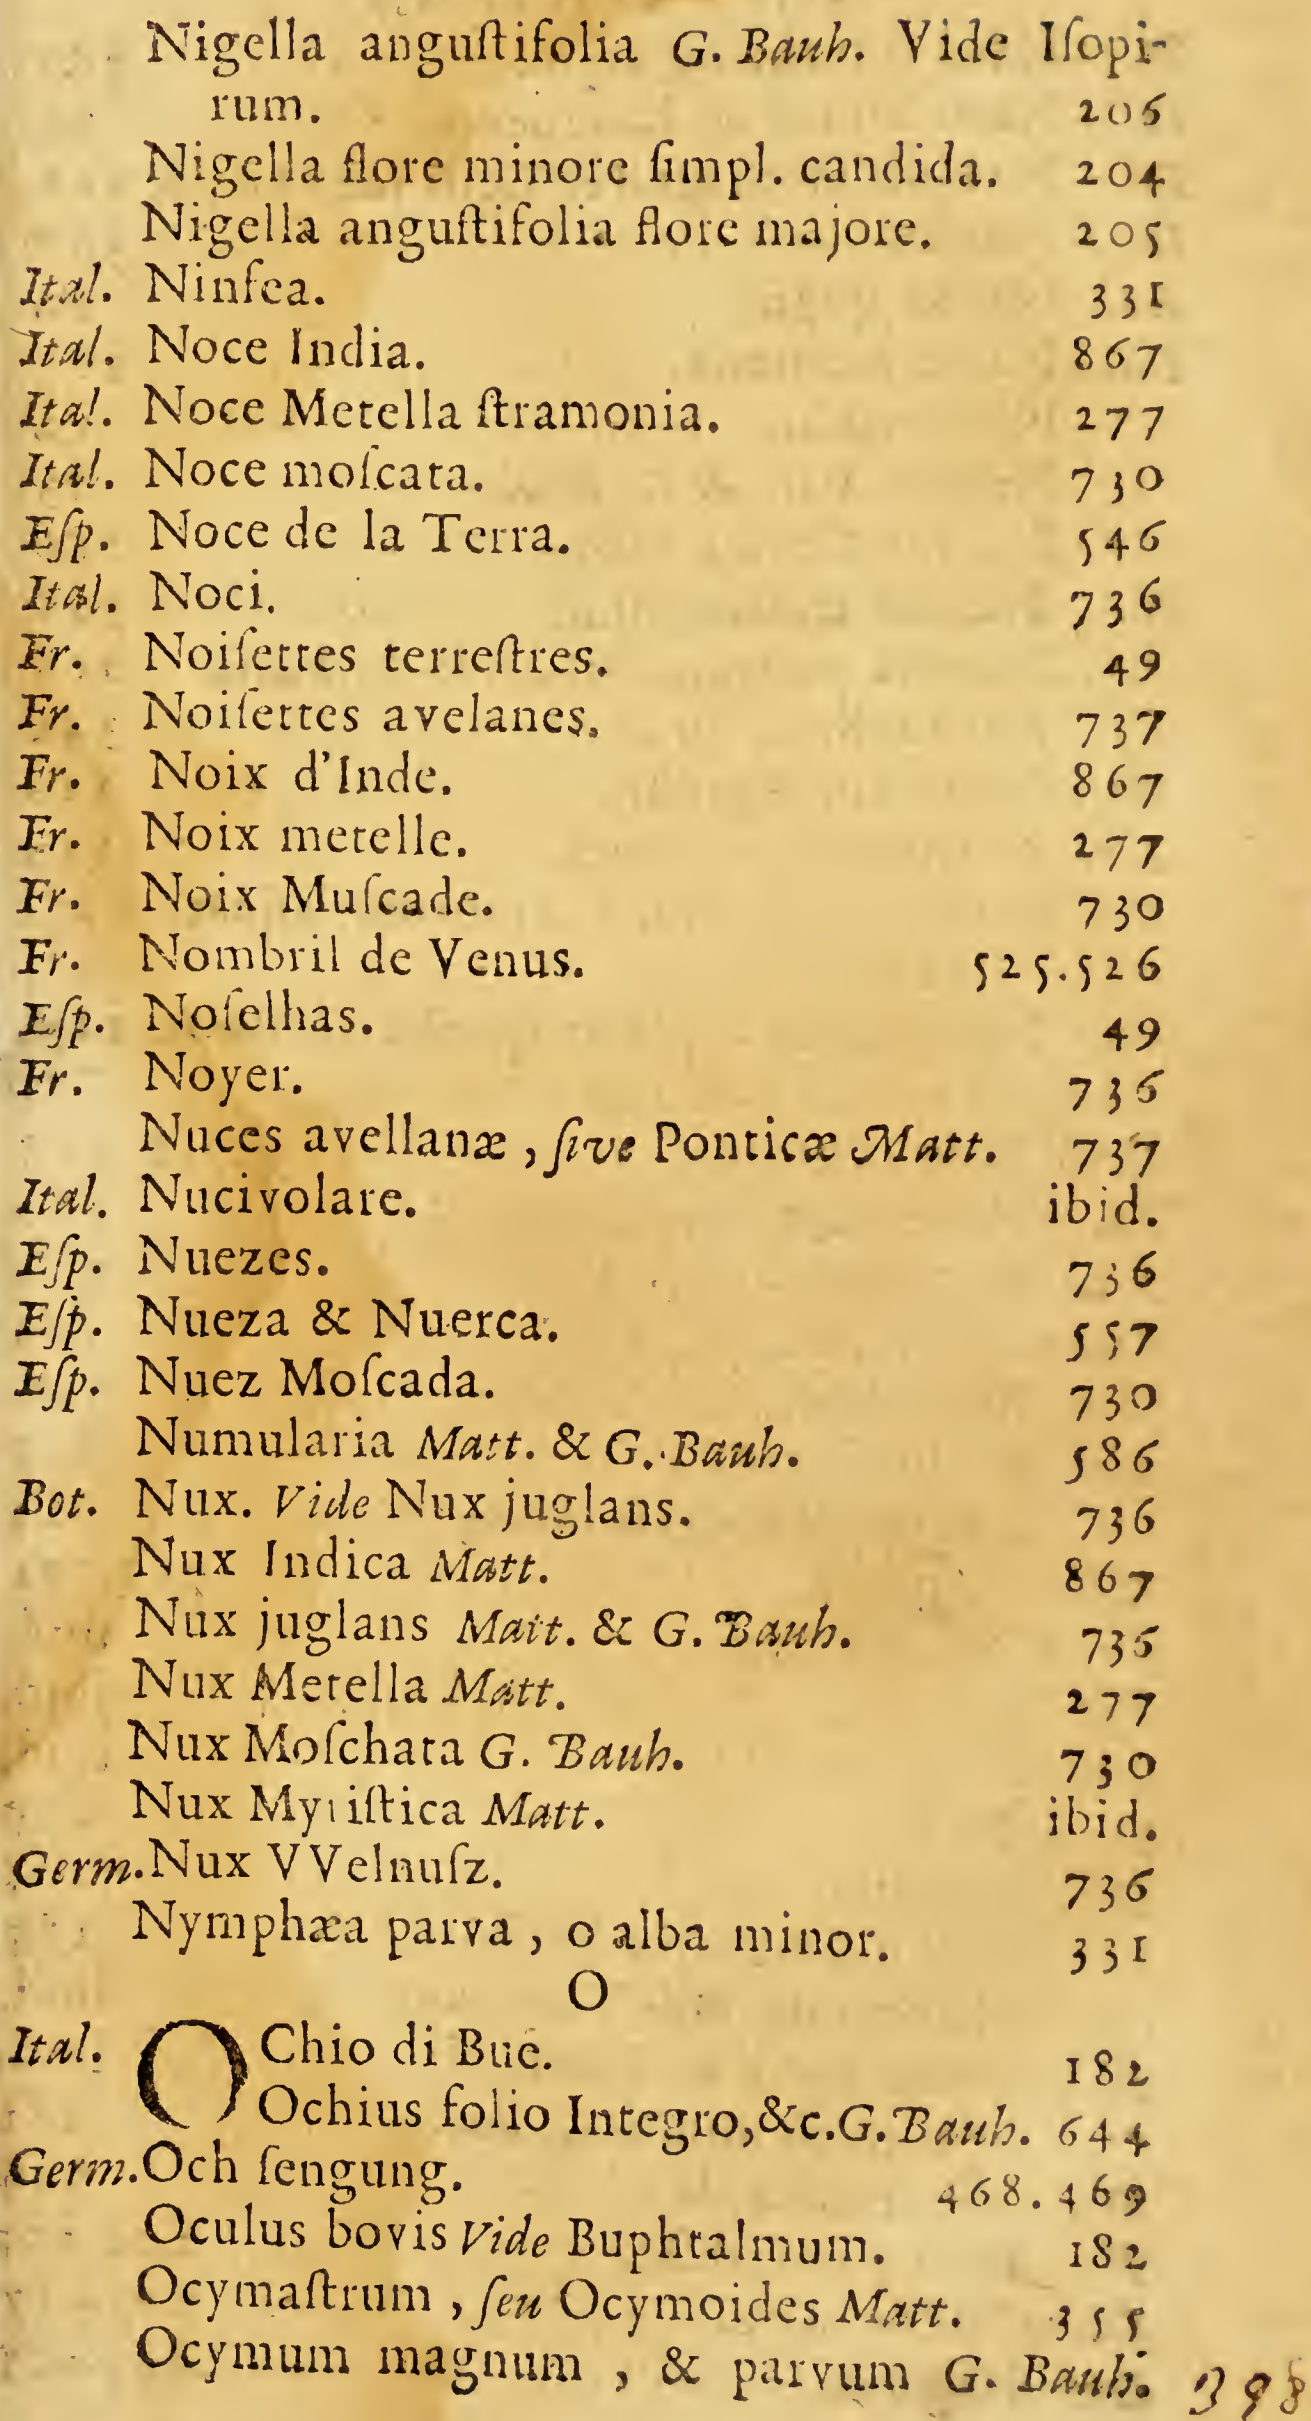 Nigella anguſtifolia G. Bauh. Vide Iſopi-
rum. 206
Nigella flore minore ſimpl. candida. 204
Nigella anguſtifolia flore majore. 205
Ital. Ninfea. 331
Ital. Noce India. 867
Ital. Noce Metella ſtramonia. 277
Ital. Noce moſcata. 730
Eſp. Noce de la Terra. 546
Ital. Noci. 736
Fr. Noiſettes terreſtres. 49
Fr. Noiſettes avelanes. 737
Fr. Noix d'Inde. 867
Fr. Noix metelle. 277
Fr. Noix Muſcade. 730
Fr. Nombril de Venus. 525.526
Eſp. Noſelhas. 49
Fr. Noyer. 736
Nuces avellanæ, ſive Ponticæ Matt. 737
Ital. Nucivolare. ibid.
Eſp. Nuezes. 736
Eſp. Nueza & Nuerca. 557
Eſp. Nuez Moſcada. 730
Numularia Matt. & G. Bauh. 586
Bot. Nux. Vide Nux juglans. 736
Nux Indica Matt. 867
Nux juglans Matt. & G. Bauh. 736
Nux Metella Matt. 277
Nux Moſchata G. Bauh. 730
Nux Myriſtica Matt. ibid.
Germ. Nux VVelnuſz. 736
Nymphæa parva, o alba minor. 331
O
Ital. OChio di Bue. 182
Ochius folio Integro, &c. G. Bauh. 644
Germ. Och ſengung. 468.469
Oculus bovis Vide Buphtalmum. 182
Ocymaſtrum, ſeu Ocymoides Matt. 355
Ocymum magnum, & parvum G. Bauh. 398